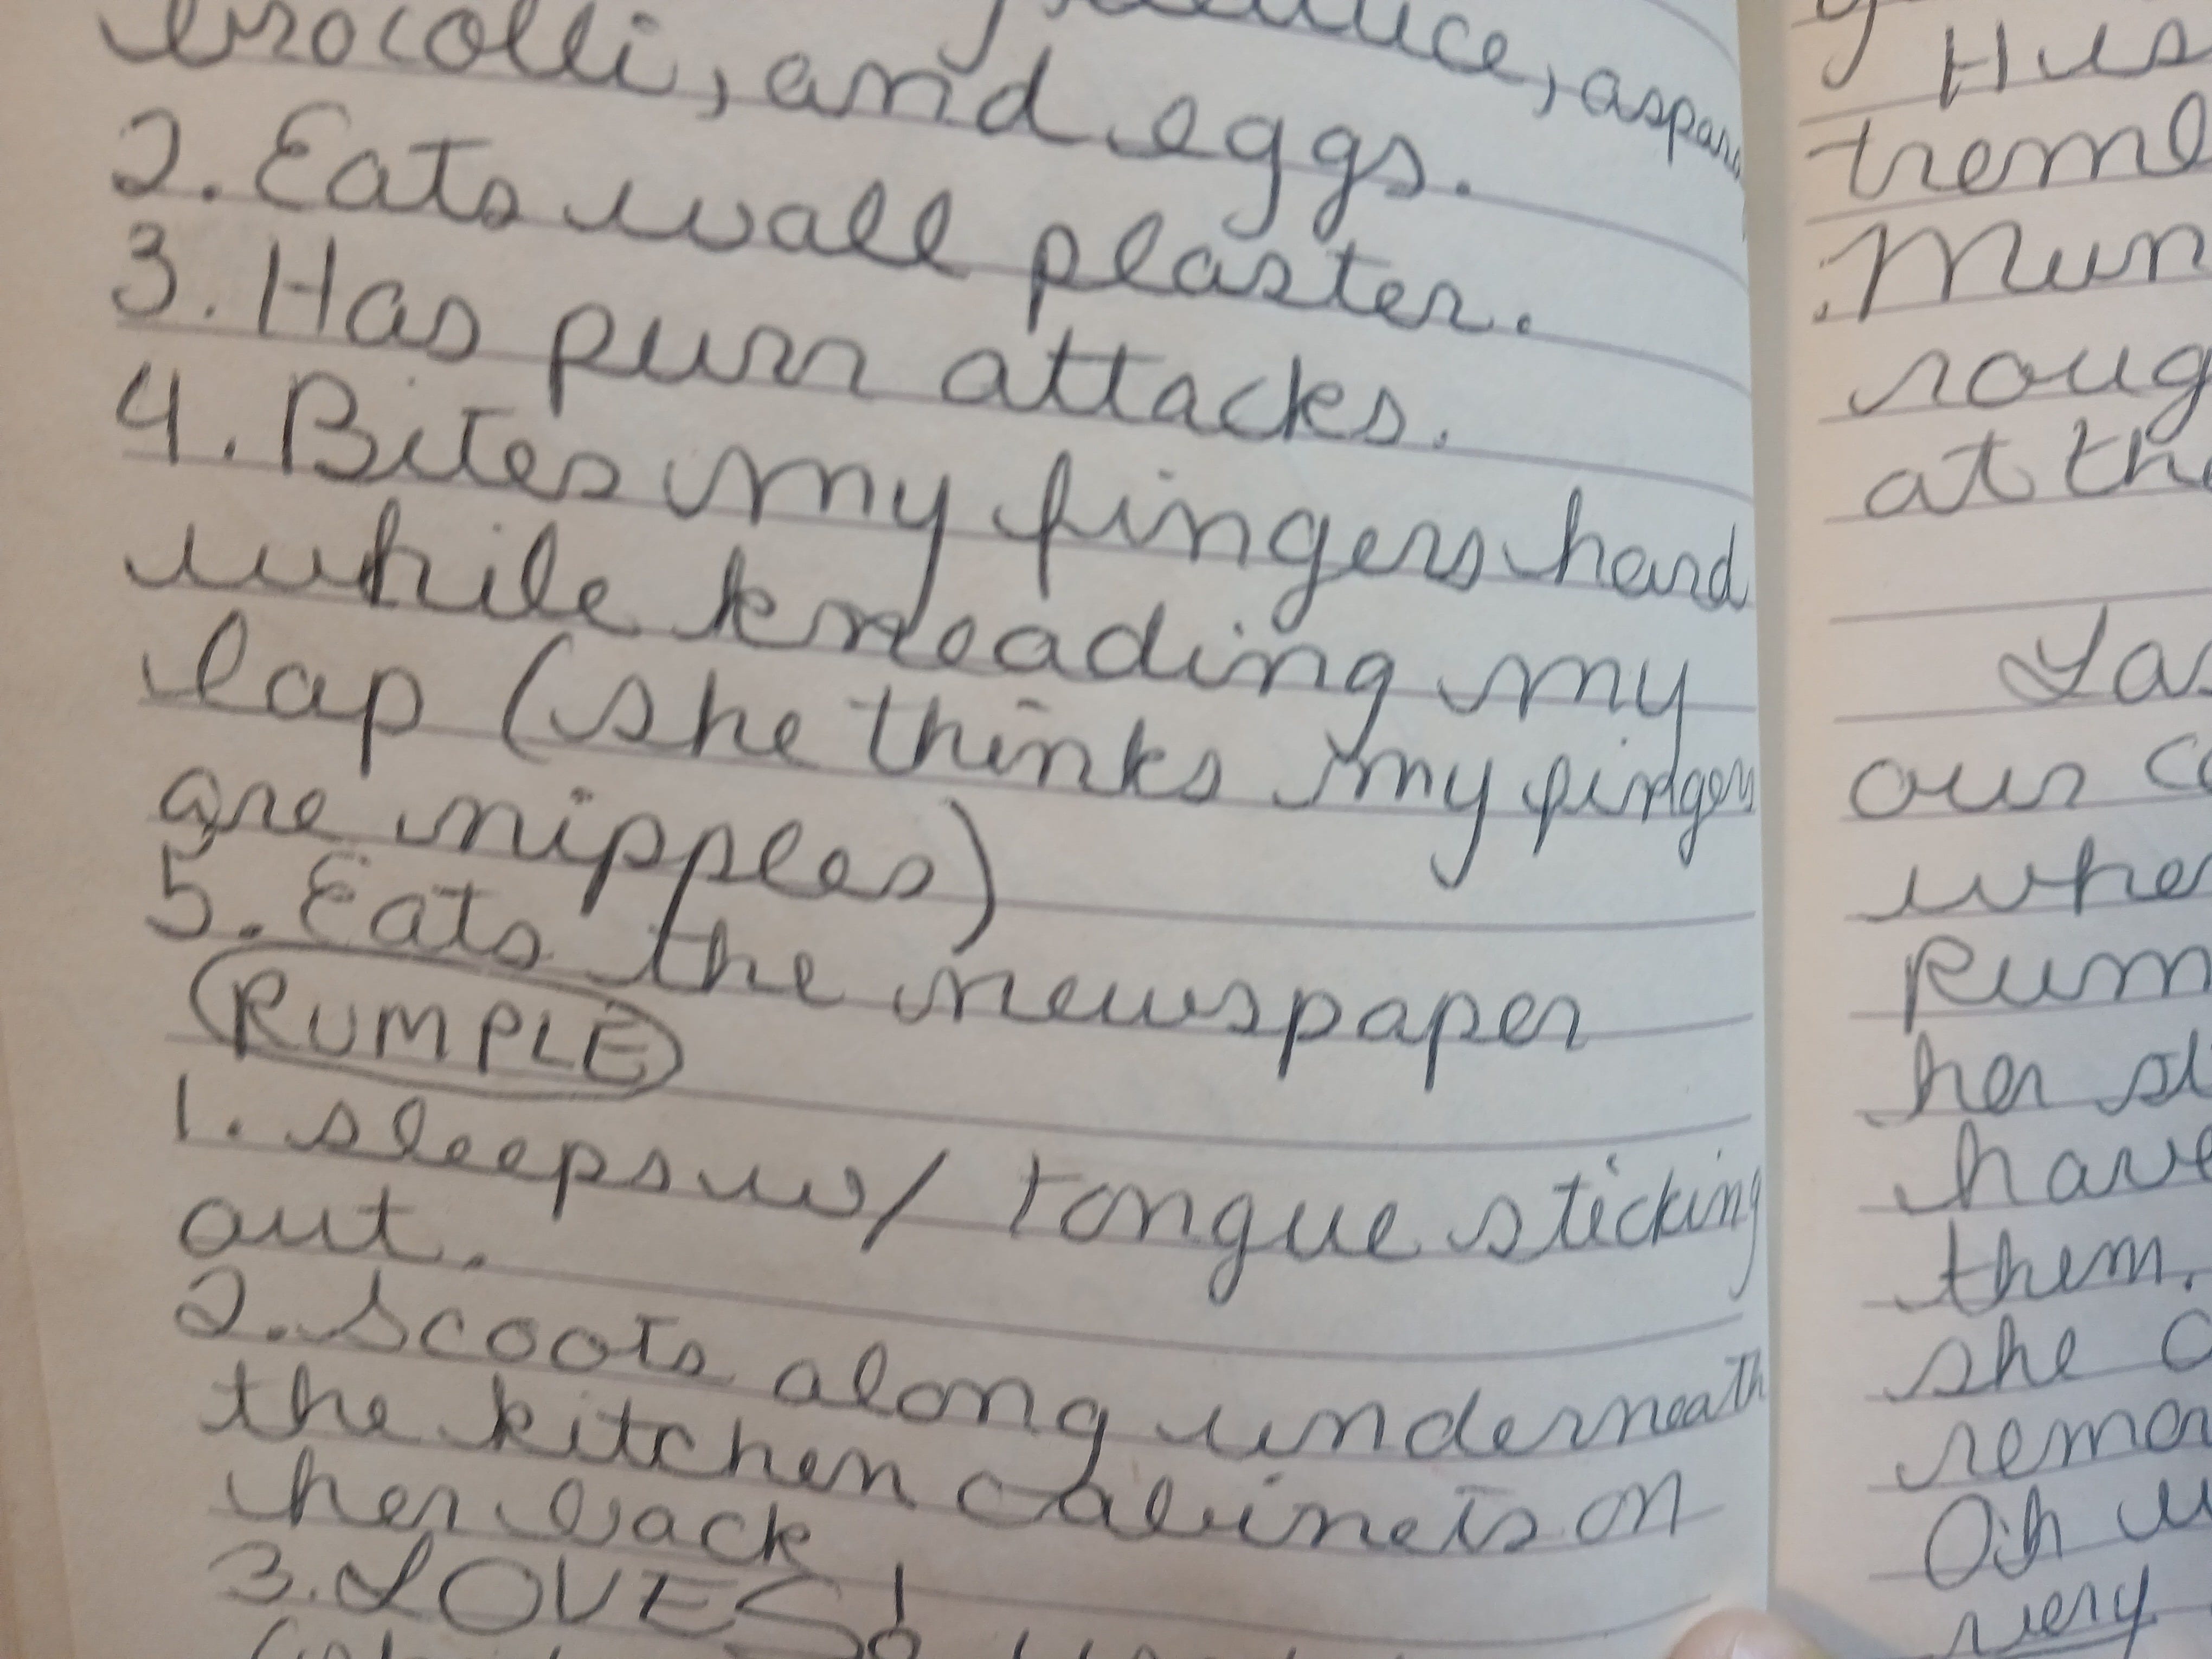 lettuce, aspara
brocolli, and eggs.
2. Eats wall plaster.
3. Has purr attacks.
4. Bites my fingers hard
while kneading my
lap (she thinks my fingers
are nipples)
5. Eats the newspaper
RUMPLE
1. sleeps w/ tongue sticking
out.
2. Scoots along underneath
the kitchen cabinets on
her back
3. LOVES!
Hus
tremb
Mun
roug
at the
Las
our co
when
Rum
her sl
have
them.
she c
remar
Oh w
very